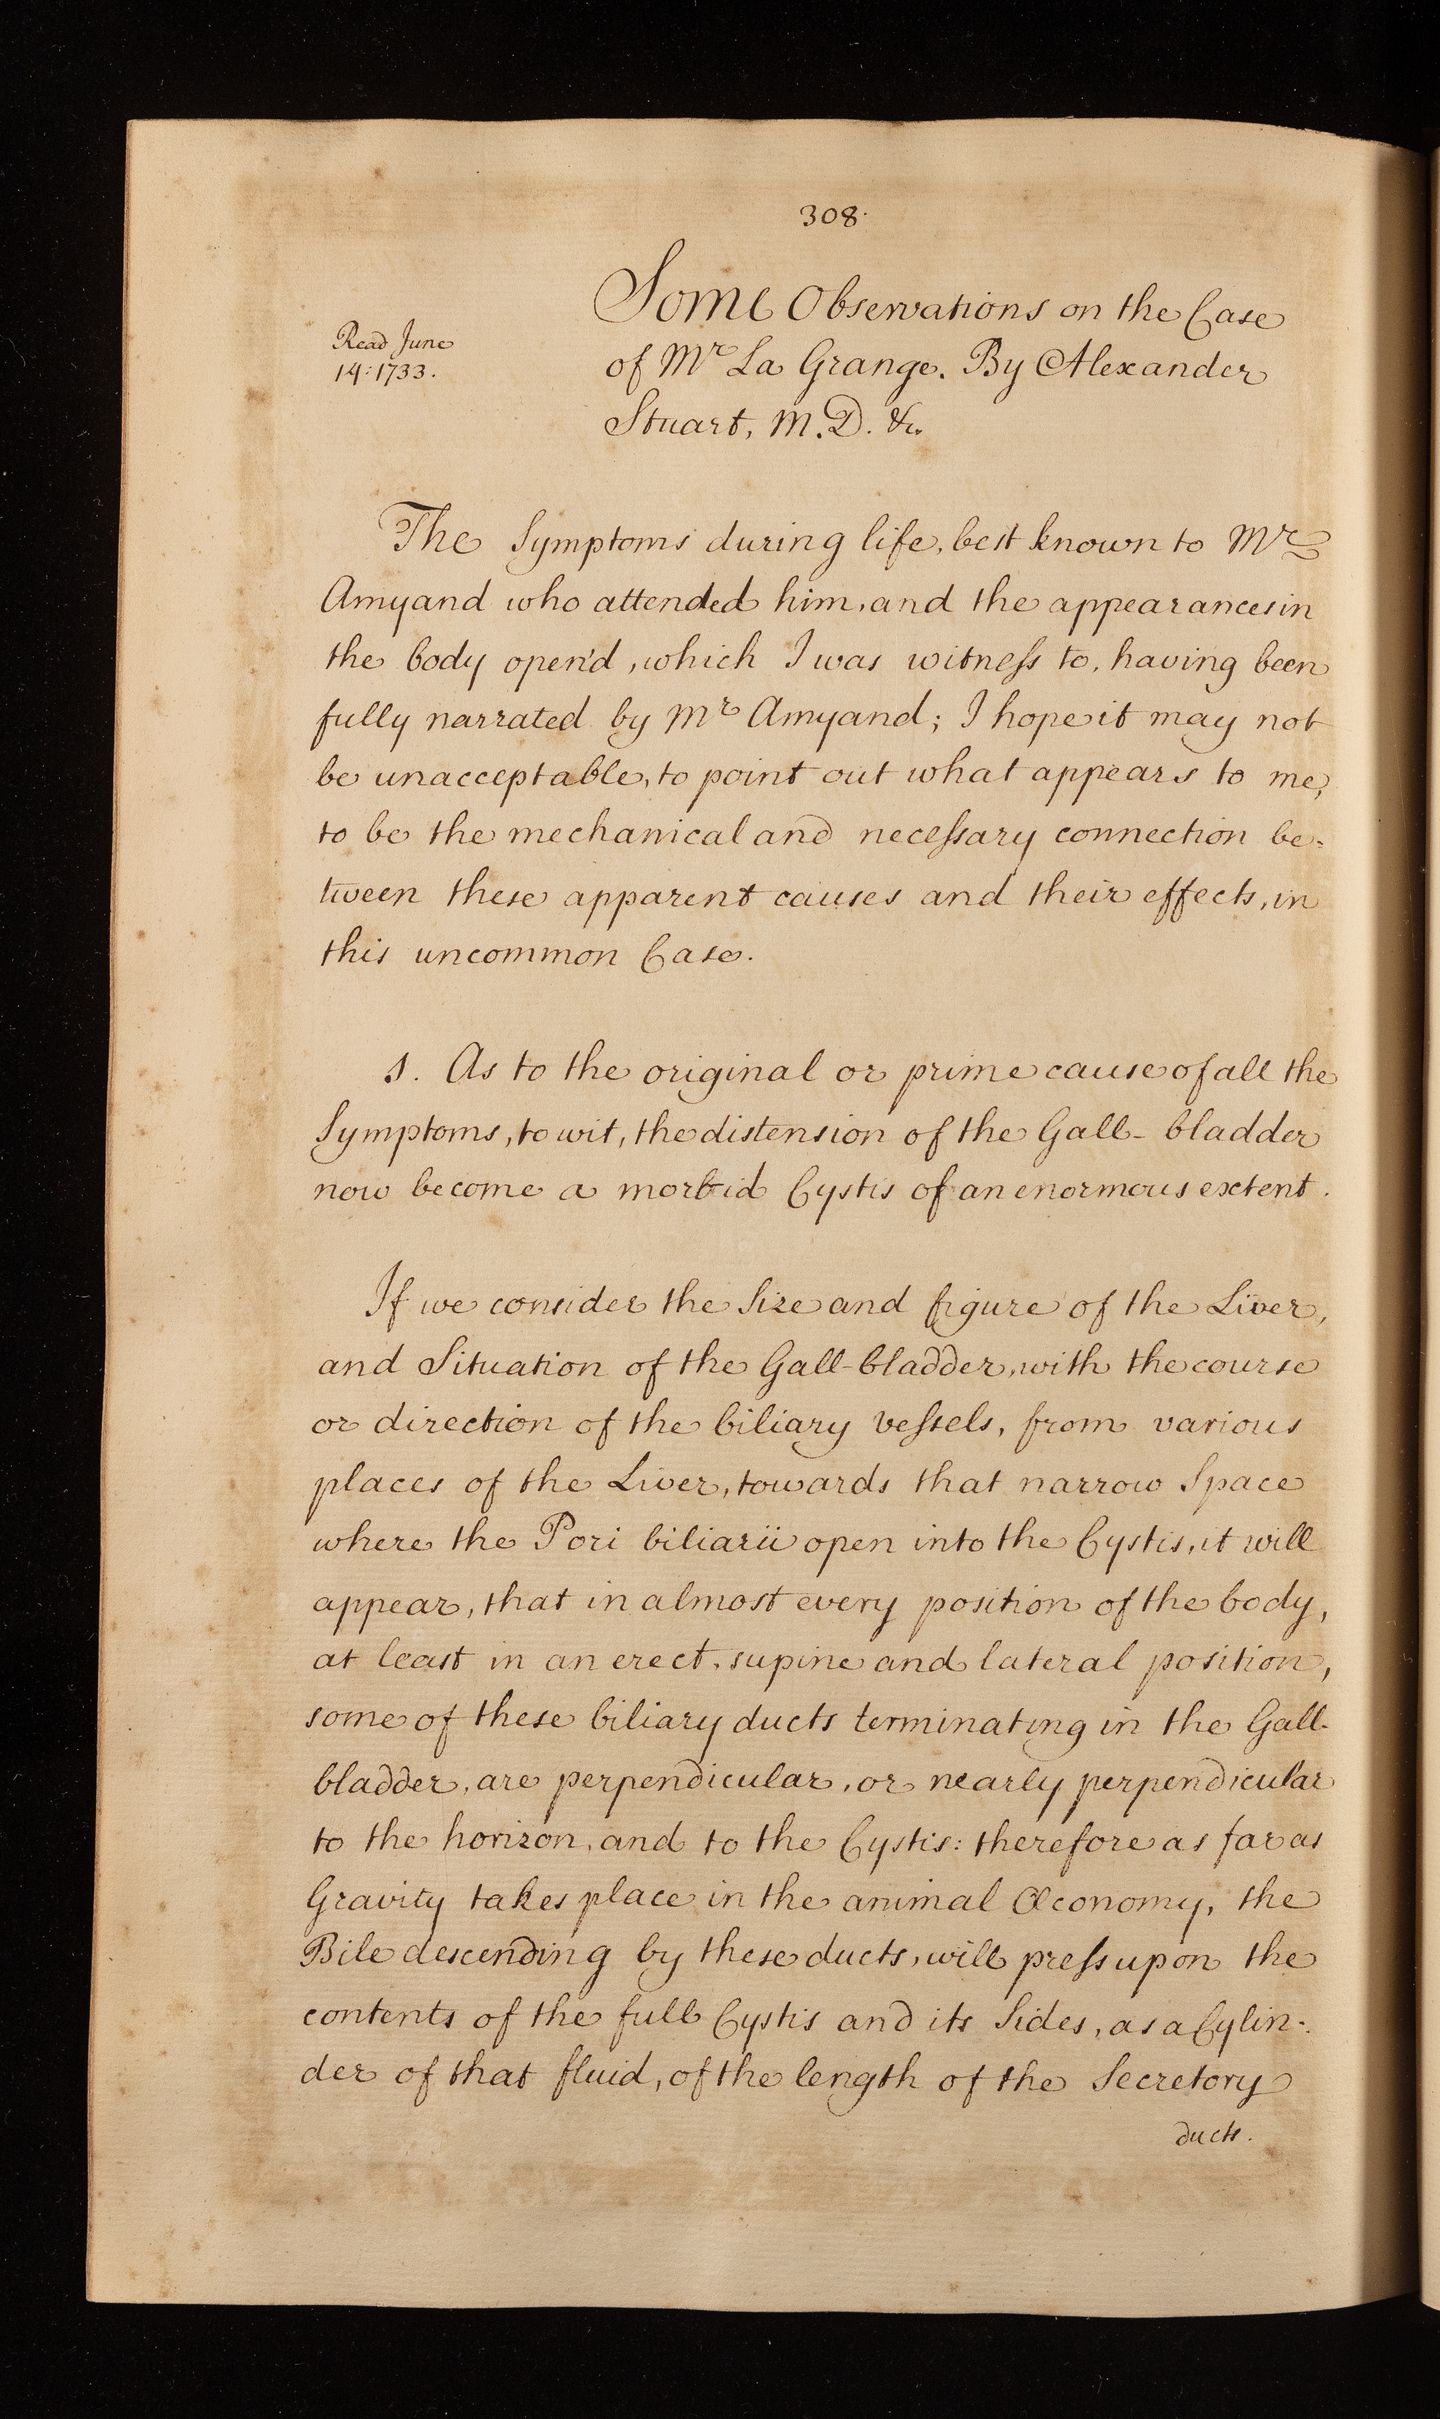 308.
Some Observations on the Case
of Mr La Grange. By Alexander
Stuart, M.D. &c.
Read June
14: 1733.
The Symptoms during life, best known to Mr
Amyand who attended him, and the appearances in
the body open'd, which I was witness to, having been
fully narrated by Mr Amyand; I hope it may not
be unacceptable, to point out what appears to me,
to be the mechanical and necessary connection be-
tween these apparent causes and their effects, in
this uncommon Case.
1. As to the original or prime cause of all the
Symptoms, to wit, the distension of the Gall-bladder
now become a morbid Cystis of an enormous extent.
If we consider the Size and figure of the Liver,
and Situation of the Gall-bladder, with the course
or direction of the biliary vessels, from various
places of the Liver, towards that narrow Space
where the Pori biliarii open into the Cystis, it will
appear, that in almost every position of the body,
at least in an erect, supine and lateral position,
some of these biliary ducts terminating in the Gall-
bladder, are perpendicular, or nearly perpendicular
to the horizon, and to the Cystis: therefore as far as
Gravity takes place in the animal Œconomy, the
Bile descending by these ducts, will press upon the
contents of the full Cystis and its Sides, as a Cylin-
der of that fluid, of the length of the Secretory
ducts.